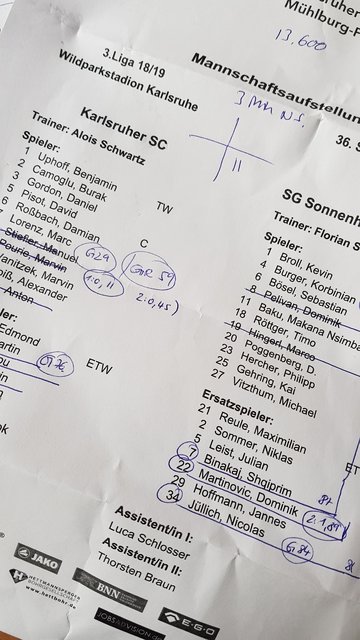 Mühlburg-
13.600
3.Liga 18/19
Wildparkstadion Karlsruhe
Mannschaftsaufstellun
3 Min NS.
36. S
11
Karlsruher SC
Trainer: Alois Schwartz
Spieler:
1 Uphoff, Benjamin TW
2 Camoglu, Burak
3 Gordon, Daniel
5 Pisot, David
6 Roßbach, Damian
Lorenz, Marc C
Stiefler, Manuel G29 GNR 59
Pourie, Marvin 1:0, 11 2:0, 45)
Wanitzek, Marvin
Alexander
Anton
Edmond
G76 ETW
SG Sonnenh
Trainer: Florian S
Spieler:
1 Broll, Kevin
4 Burger, Korbinian
6 Bösel, Sebastian
8 Pelivan, Dominik
11 Baku, Makana Nsimba
18 Röttger, Timo
19 Hingerl, Marco
20 Poggenberg, D.
23 Hercher, Philipp
25 Gehring, Kai
27 Vitzthum, Michael
Ersatzspieler:
21 Reule, Maximilian ET
2 Sommer, Niklas
5 Leist, Julian
7 Binakaj, Shqiprim
22 Martinovic, Dominik
29 Hoffmann, Jannes 2:1, 89
34 Jüllich, Nicolas
G84
Assistent/in I:
Luca Schlosser
Assistent/in II:
Thorsten Braun
JAKO
HETTMANNSPERGER
BOHRGESELLSCHAFT
www.hettbohr.de
BNN
E·G·O
JOBSADVISION.de